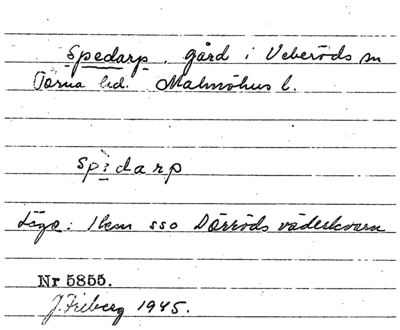 Spedarp, gård i Veberöds sn
Torna hd. Malmöhus l.
spe:darp
Läge: 1 km sso Dörröds väderkvarn
Nr 5855.
J. Friberg 1945.